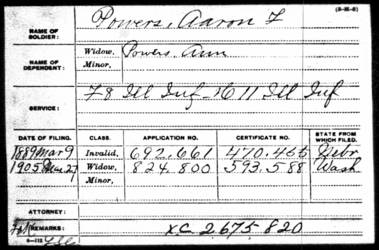 (3-35-6)
NAME OF SOLDIER: Powers, Aaron F
NAME OF DEPENDENT: Widow, Powers, Ann
Minor,
SERVICE: F 8 Ill Inf - K 11 Ill Inf
DATE OF FILING. CLASS. APPLICATION NO. CERTIFICATE NO. STATE FROM WHICH FILED.
1889 Mar 9 Invalid, 692.661 470.455 Nebr
1905 27 Widow, 824.800 593.588 Wash
Minor,
ATTORNEY:
REMARKS: XC 2675 820